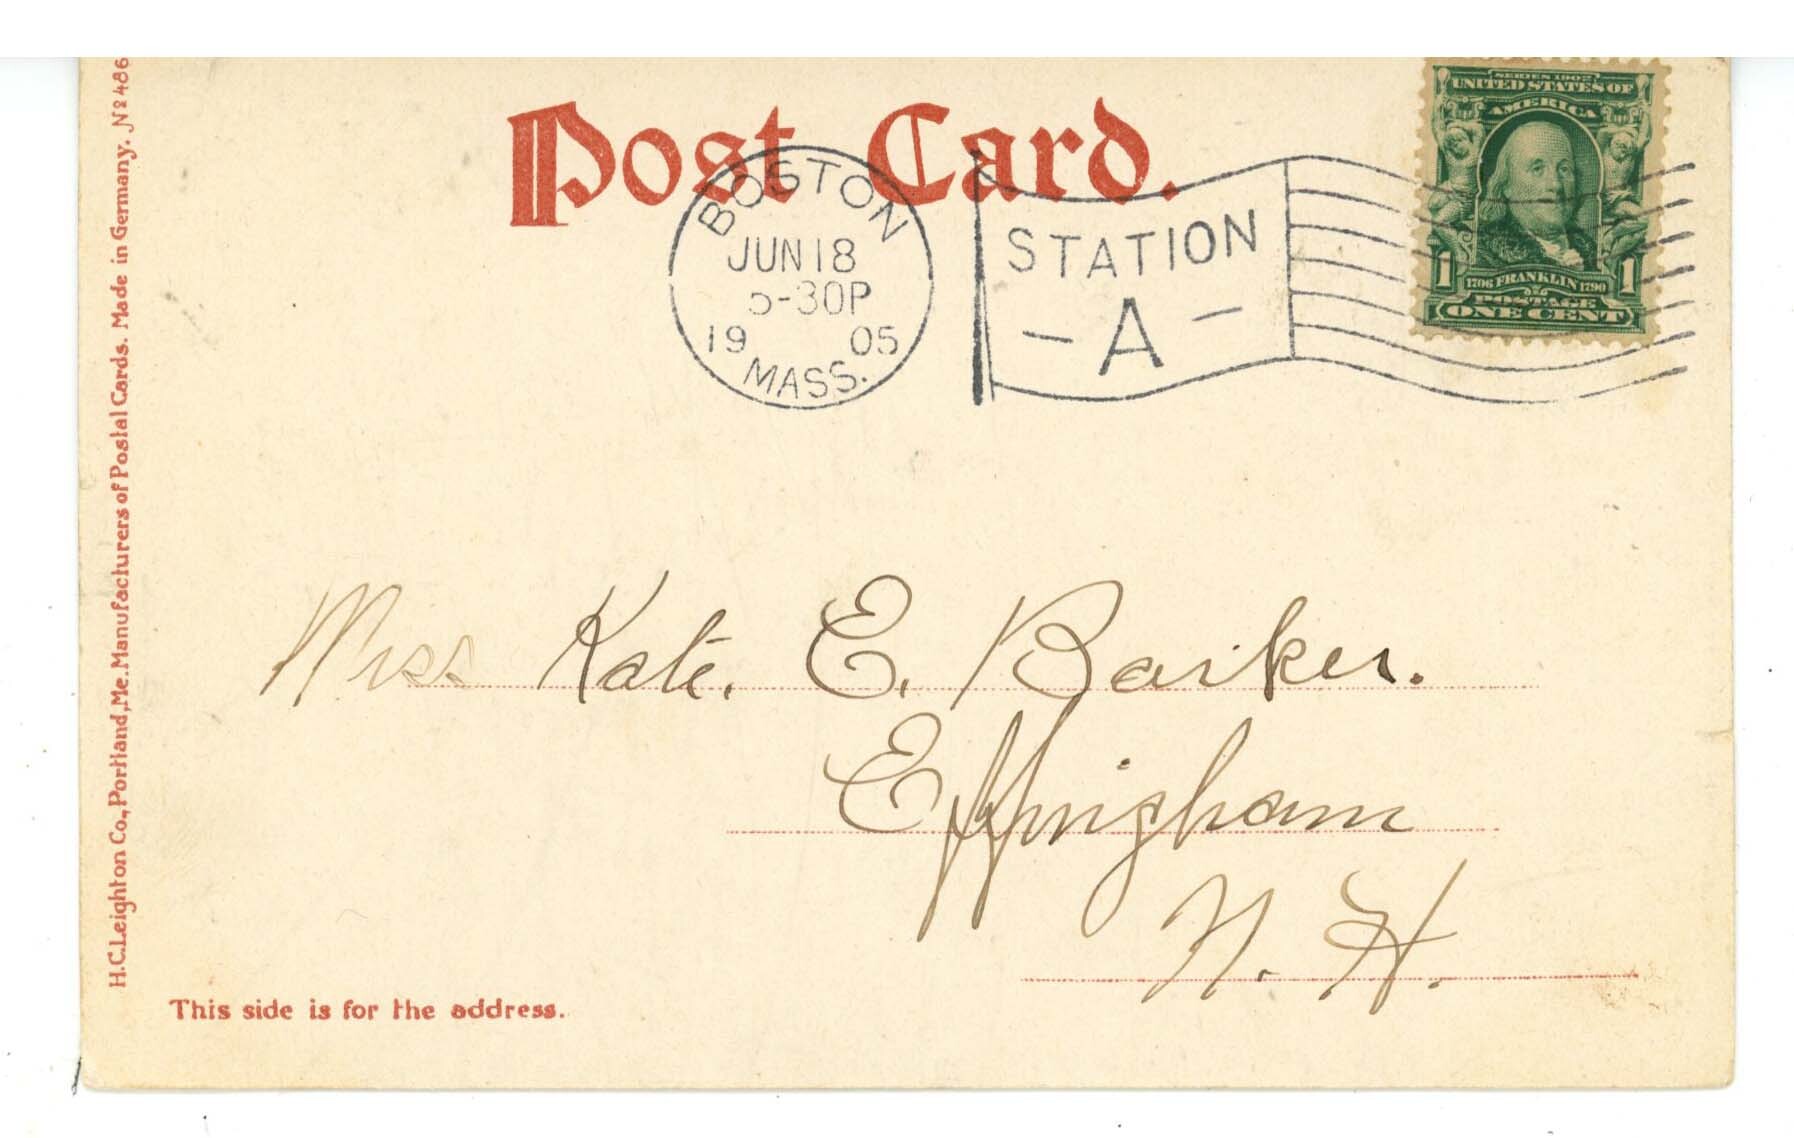 Post Card.
SERIES 1902
UNITED STATES OF
AMERICA
1 1706 FRANKLIN 1790 1
POSTAGE
ONE CENT
BOSTON
JUN 18
5-30P
19 05
MASS.
STATION
- A -
Miss Kate. E. Barker.
Effingham
N. H.
This side is for the address.
H.C. Leighton Co., Portland, Me. Manufacturers of Postal Cards. Made in Germany. No 486